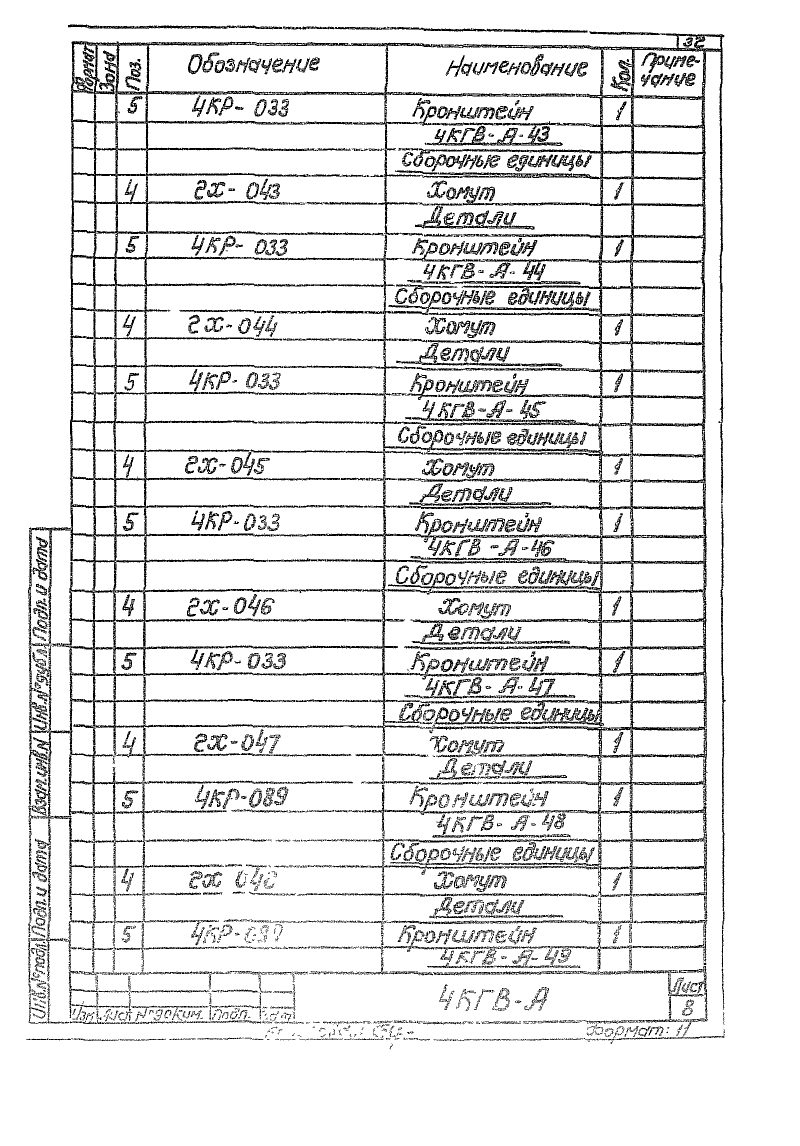 32
Формат Зона Поз. Обозначение Наименование Кол. Приме-
чание
5 4КР-033 Кронштейн 1
4КГВ-А-43
Сборочные единицы
4 2Х-043 Хомут 1
Детали
5 4КР-033 Кронштейн 1
4КГВ-А-44
Сборочные единицы
4 2Х-044 Хомут 1
Детали
5 4КР-033 Кронштейн 1
4КГВ-А-45
Сборочные единицы
4 2Х-045 Хомут 1
Детали
5 4КР-033 Кронштейн 1
4КГВ-А-46
Сборочные единицы
4 2Х-046 Хомут 1
Детали
5 4КР-033 Кронштейн 1
4КГВ-А-47
Сборочные единицы
4 2Х-047 Хомут 1
Детали
5 4КР-089 Кронштейн 1
4КГВ-А-48
Сборочные единицы
4 2Х Хомут 1
Детали
5 Кронштейн 1
4КГВ-А-49
Инв.№подл. Подп. и дата Взам.инв.№ Инв.№дубл. Подп. и дата
4КГВ-А
Лист
8
Изм. Лист №докум. Подп. Дата
Формат: 11